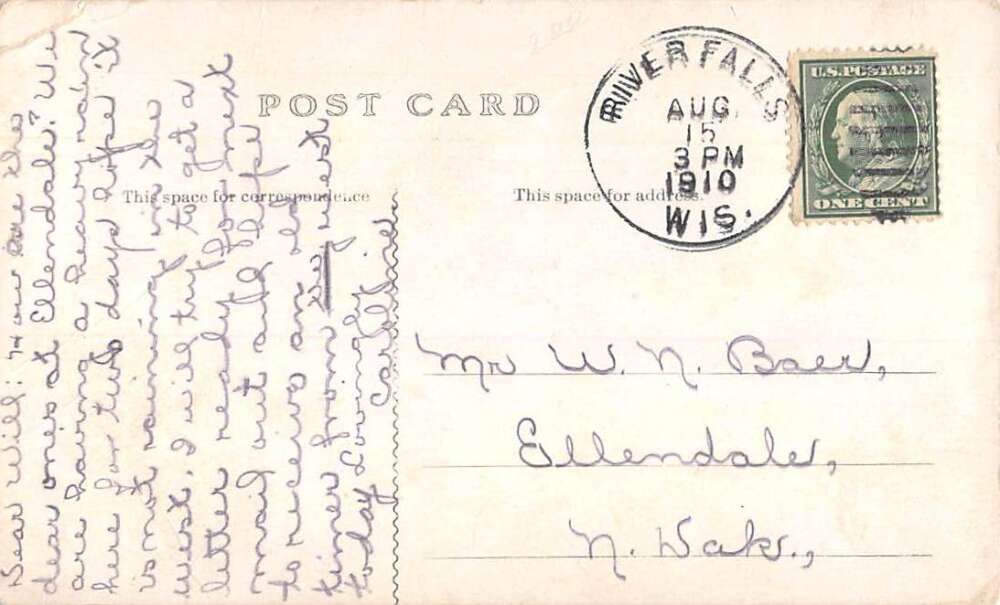 POST CARD
This space for correspondence
This space for address.
RIVER FALLS
AUG.
15
3 PM
1910
WIS.
U.S. POSTAGE
ONE CENT
Mr W. N. Baer,
Ellendale,
N. Dak.,
Dear Will: How are the
dear ones at Ellendale? We
are having a heavy rain
here for two days hope it
is not raining in the
west. I will try to get a
letter ready for next
mail out all hope
to receive an
time from west
today Lovingly